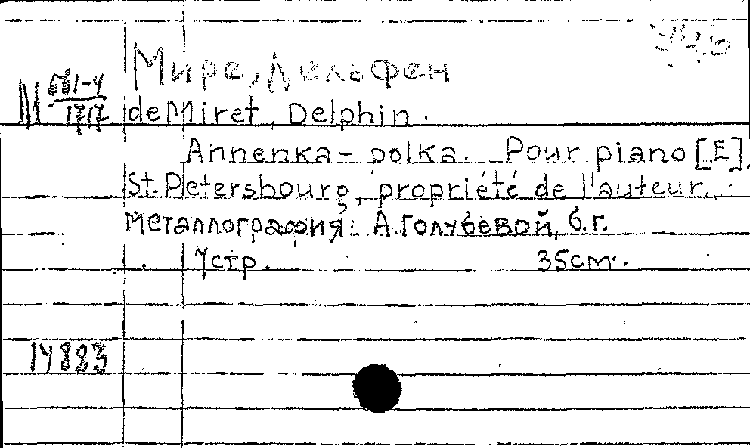 Мире, Дельфен
М 681-4
1717
de Miret, Delphin.
Annenka - polka. Pour piano [E].
St. Petersbourg, propriété de l'auteur.
Металлография А. Голубевой, б.г.
7 стр. 35 см.
14883